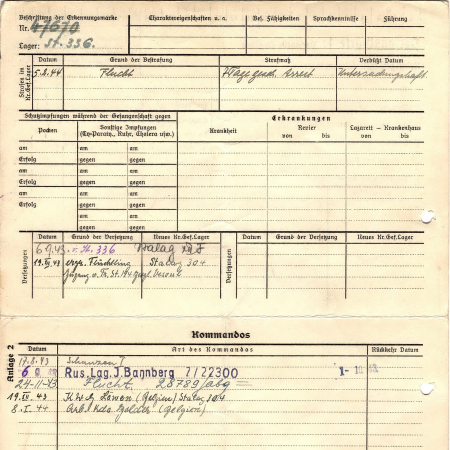 Beschriftung der Erkennungsmarke
Nr. 47670
Lager: St. 336.
Charaktereigenschaften u. a.
Bes. Fähigkeiten
Sprachkenntnisse
Führung
Strafen im Kr.Gef.Lager
Datum
Grund der Bestrafung
Strafmaß
Verbüßt Datum
5.2.44
Flucht
Tage gesch. Arrest
Untersuchungshaft
Schutzimpfungen während der Gefangenschaft gegen
Erkrankungen
Pocken
Sonstige Impfungen
(Ty-Paraty., Ruhr, Cholera usw.)
Krankheit
Revier
von bis
Lazarett - Krankenhaus
von bis
am am am
Erfolg gegen gegen
am am am
Erfolg gegen gegen
am am am
Erfolg gegen gegen
am am
gegen gegen
Versetzungen
Datum
Grund der Versetzung
Neues Kr.Gef.Lager
Versetzungen
Datum
Grund der Versetzung
Neues Kr.-Gef.Lager
6.9.43 v. St. 336 Stalag
19.XII.43 Flüchtling Stalag 304
Anlage 2
Kommandos
Datum
Art des Kommandos
Rückkehr Datum
17.8.43
6 9. Rus. Lag. J. Bannberg 7/22300
24-11-43 Flucht. 28789/abg
19.XII 43 Löwen (Belgien) Stalag 304
8.I.44 Arb. Kdo (Belgien)